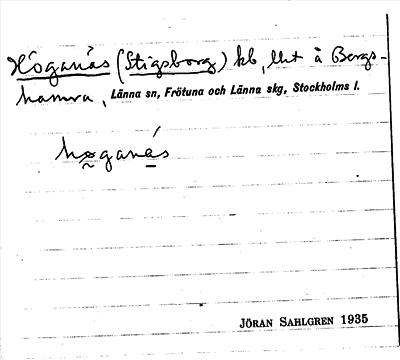 Höganäs (Stigsborg) kb, lht å Bergs-
hamra, Länna sn, Frötuna och Länna skg, Stockholms l.
høganäs
JÖRAN SAHLGREN 1935